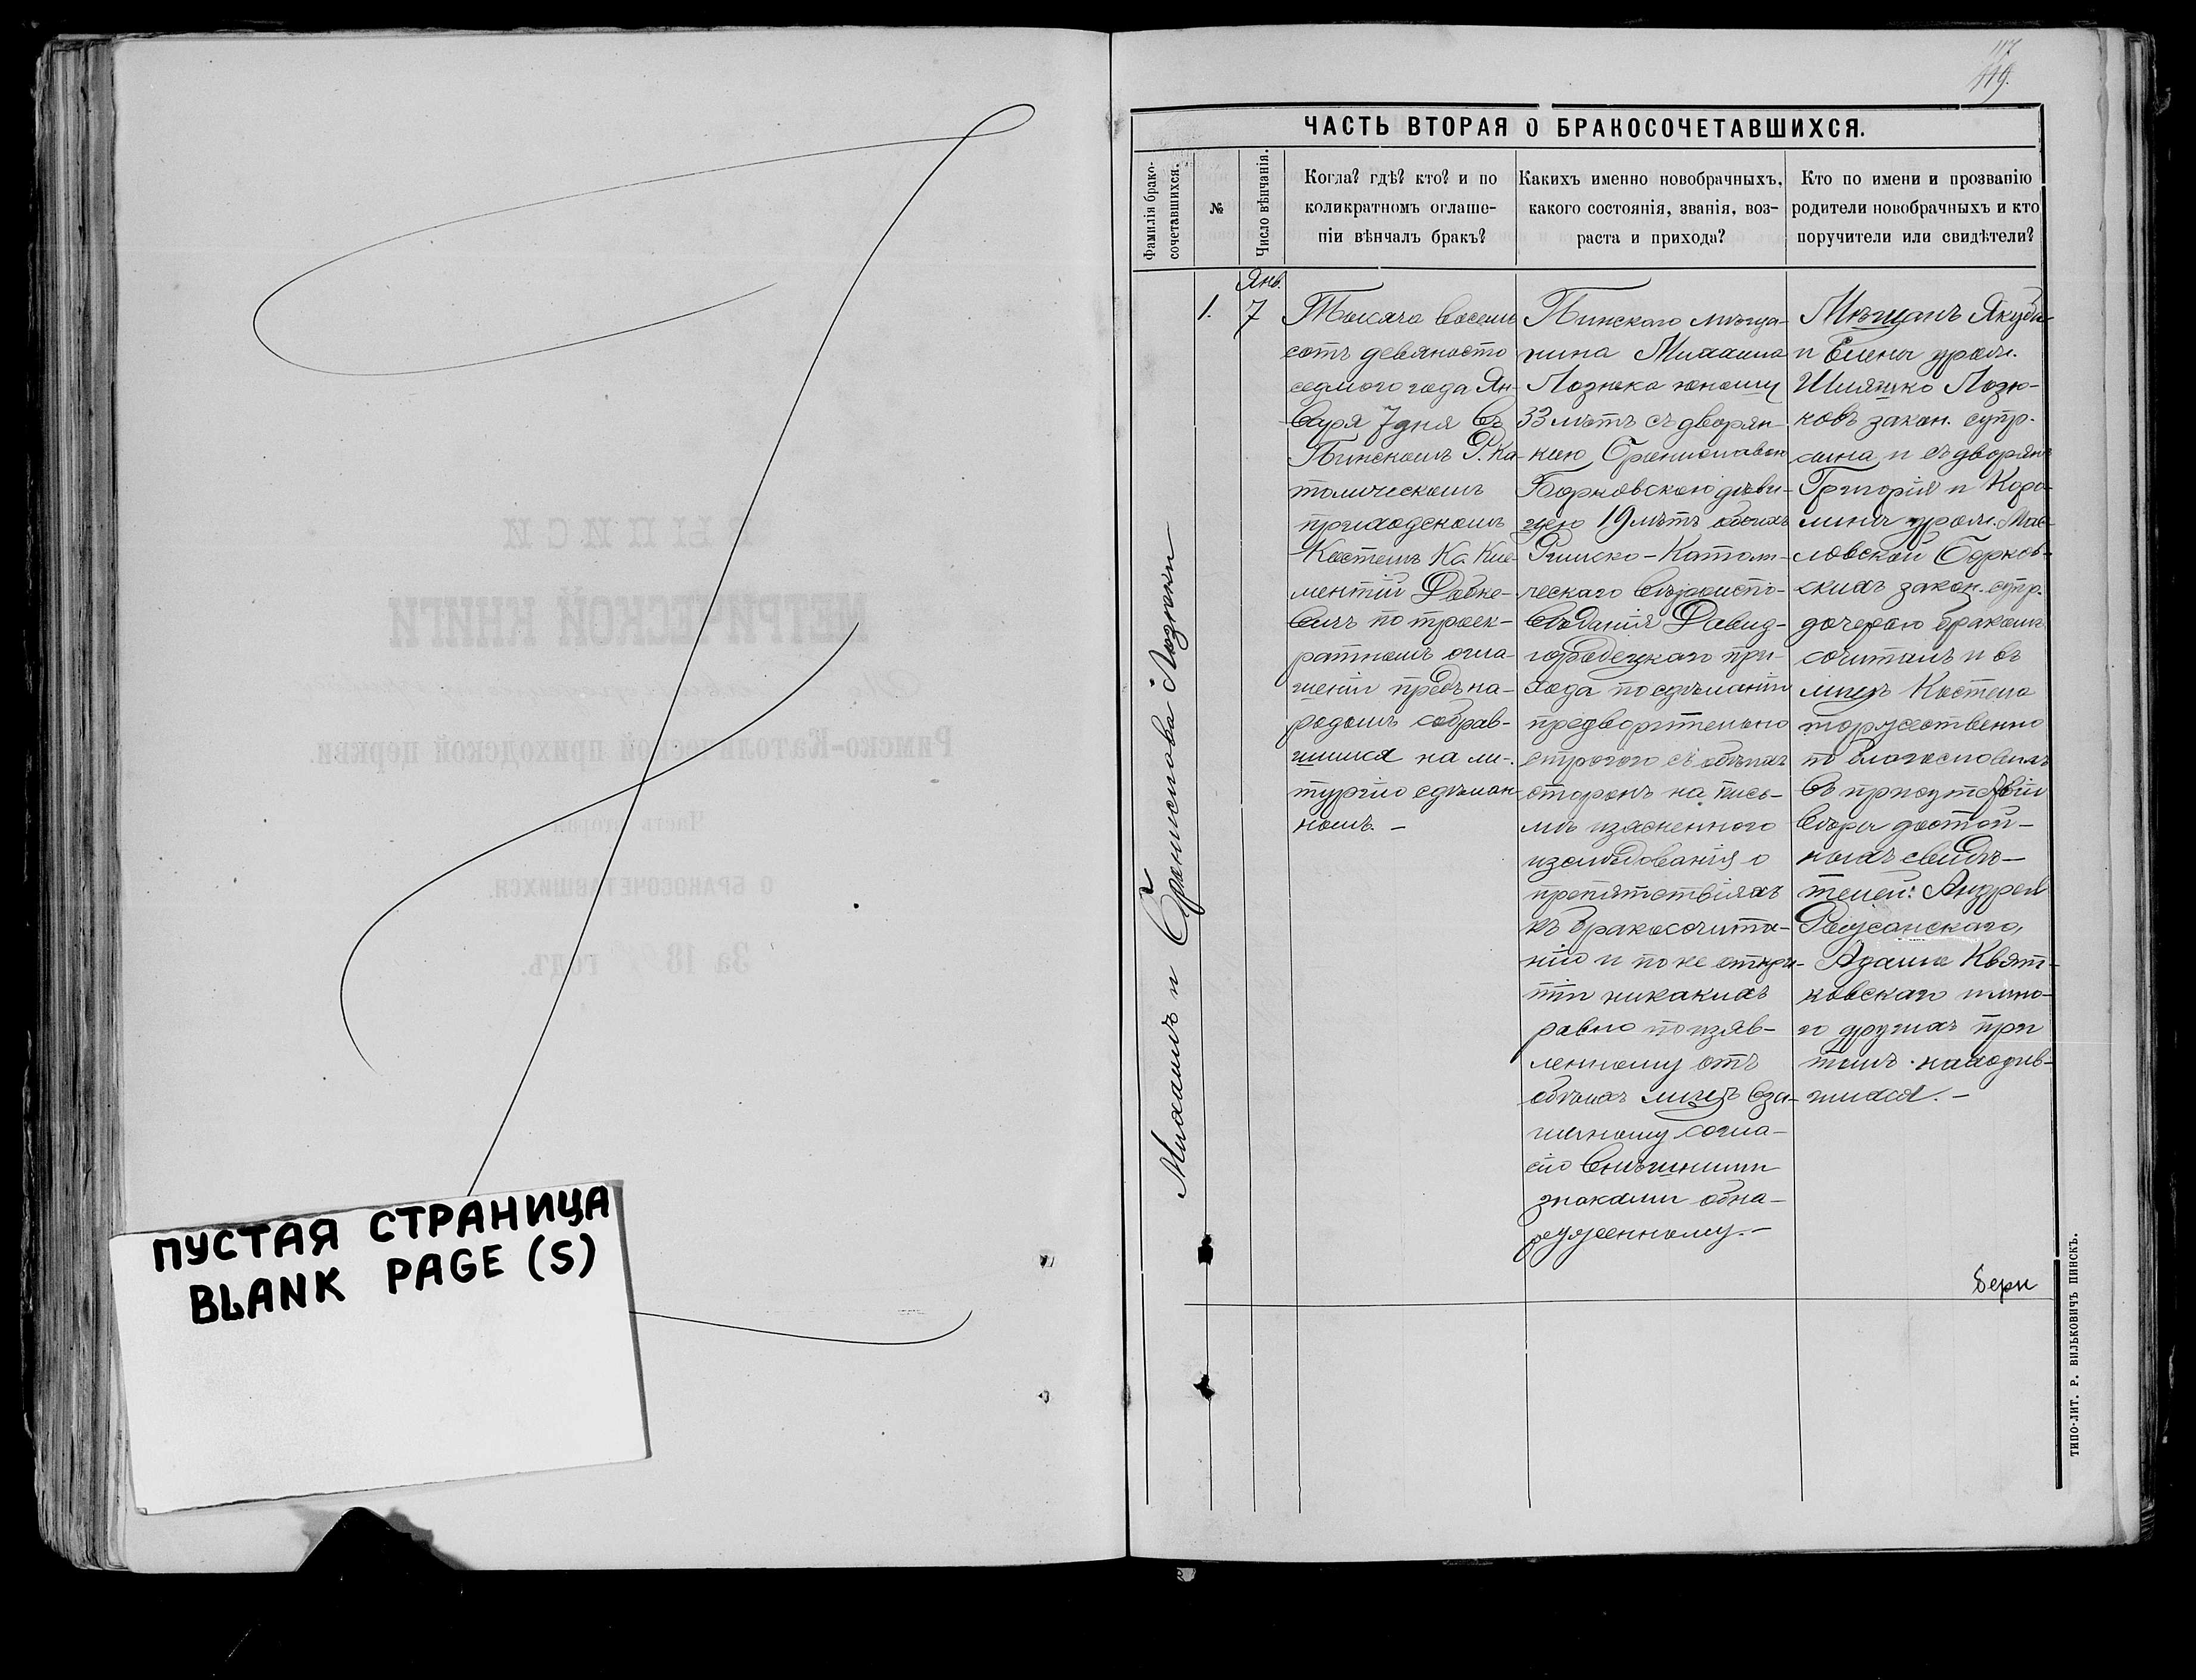 ПУСТАЯ СТРАНИЦА
BLANK PAGE (S)
117
119.
ЧАСТЬ ВТОРАЯ О БРАКОСОЧЕТАВШИХСЯ.
Фамилія брако-
сочетавшихся.
№
Число вѣнчанія.
Когда? гдѣ? кто? и по
коликратномъ оглаше-
ніи вѣнчалъ бракъ?
Какихъ именно новобрачныхъ,
какого состоянія, званія, воз-
раста и прихода?
Кто по имени и прозванію
родители новобрачныхъ и кто
поручители или свидѣтели?
Михаилъ и Брониславa Лознюки
1.
Янв.
7
Тысяча восемь
сотъ девяносто
седмого года Ян-
варя 7 дня въ
Пинскомъ Р. Ка-
толическомъ
приходскомъ
Костелѣ Кс. Кле-
ментій
по троек-
ратномъ огла-
шеніи предъ на-
родомъ собрав-
шимся на ли-
тургію сдѣлан-
номъ. –
Пинскаго мѣща-
нина Михаила
Лознюка юношу
33 лѣтъ съ дворян-
кою Брониславою
Борковскою дѣви-
цею 19 лѣтъ обоихъ
Римско-Католи-
ческаго вѣроиспо-
вѣданія Давид-
городецкаго при-
хода по сдѣланіи
предворительно
строгого съ обѣихъ
сторонъ на пись-
мѣ изясненного
изслѣдованія о
препятствіяхъ
къ бракосочита-
нію и по не откры-
тіи никакихъ
равно по изяв-
ленному отъ
обѣихъ лицъ вза-
имному согла-
сію внѣшними
знаками обна-
руженному. –
Мѣщанъ Якуба
и Елены урож.
Лозню-
ковъ закон. супр.
сына, и съ дворянъ
Григорія и Каро-
лины урож. Мас-
ловской Борков-
скихъ закон. супр.
дочерью бракомъ
сочиталъ и въ
лицѣ Костела
торжественно
по благословилъ
въ присутствіи
вѣры достой-
ныхъ свидѣ-
телей: Андрея
Адама Квят-
ковскаго и мно-
го другихъ при
томъ находив-
шихся. –
Верн
ТИПО-ЛИТ. Р. ВИЛЬКОВИЧЪ ПИНСКЪ.